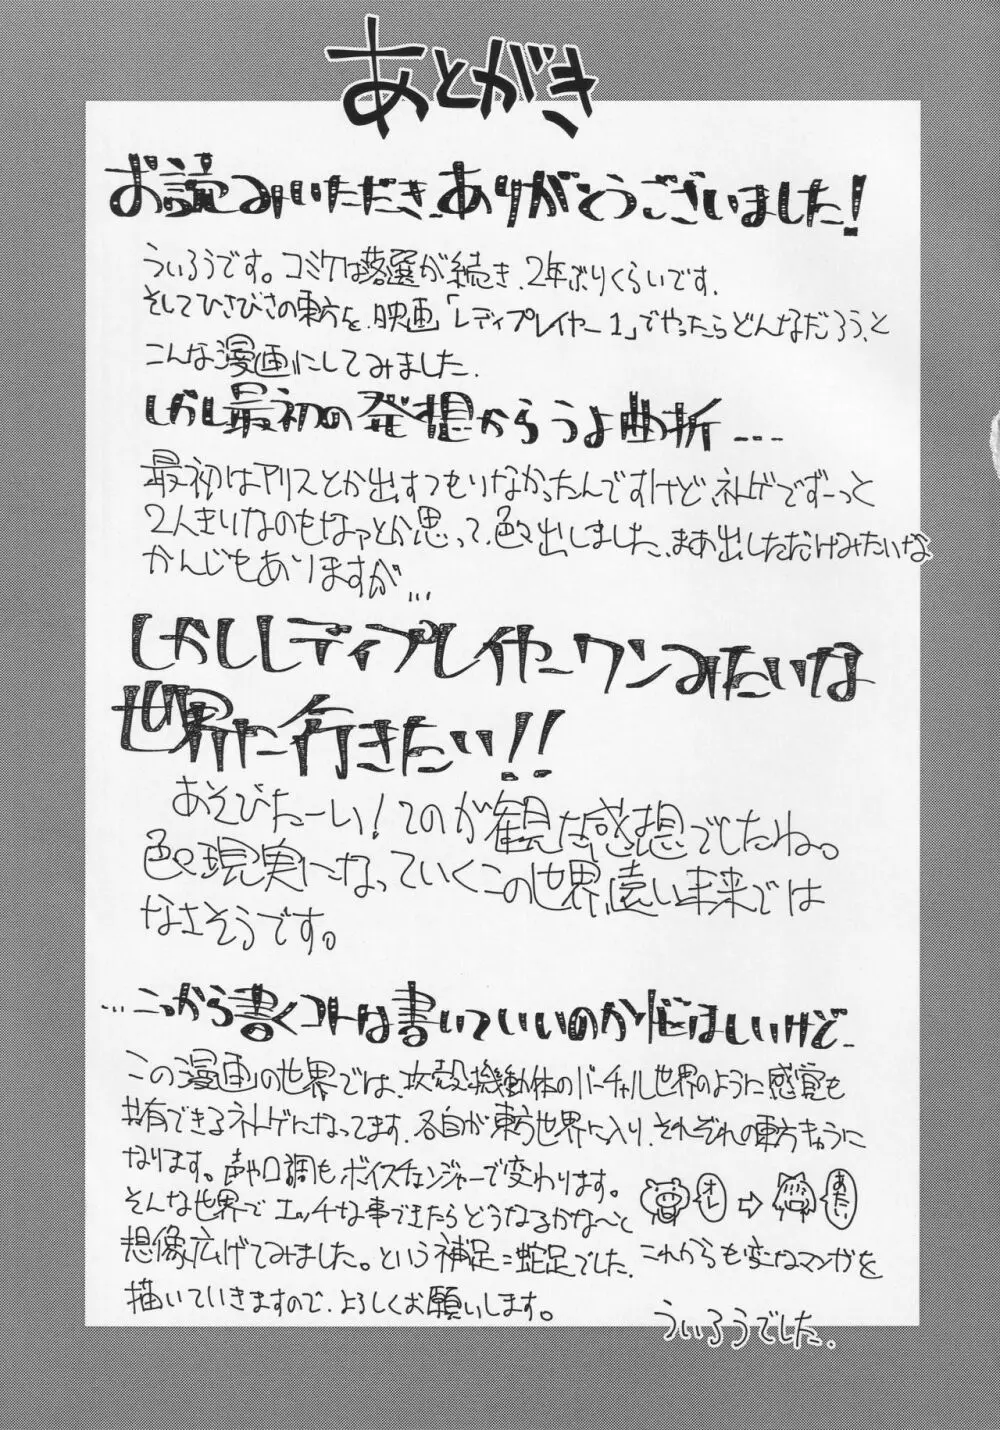 あとがき
お読みいただき、ありがとうございました!
ういろうです。コミケは落選が続き、2年ぶりくらいです。
そしてひさびさの東方を、映画「レディプレイヤー1」でやったらどんなだろう、と
こんな漫画にしてみました。
しかし最初の発想からうよ曲折....
最初はアリスとか出すつもりなかったんですけど、ネトゲでずーっと
2人きりなのもなァとか思って、色々出しました、まあ出しただけみたいな
かんじもありますが...
しかしレディプレイヤーワンみたいな
世界に行きたい!!
あそびたーい!てのが観た感想でしたね。
色々現実になっていくこの世界遠い未来では
なさそうです。
...こっから書くコトは書いていいのか
この漫画の世界では、攻殻機動体のバーチャル世界のように感覚も
共有できるネトゲになってます、各自が東方世界に入り、それぞれの東方キャラに
なります。声や口調もボイスチェンジャーで変わります。
オレ ⇨ あたい
そんな世界でエッチな事できたらどうなるかな〜と
想像広げてみました。という補足=蛇足でした、これからも変なマンガを
描いていきますので、よろしくお願いします。
ういろうでした。